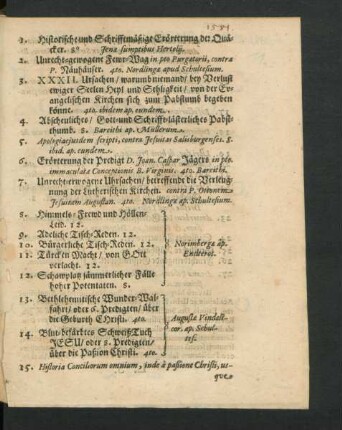 1. Historische und Schrifftmäßige Erörterung der Quä-
cker. 8° Jena sumptibus Hertelij.
2. Unrecht-gewogene Fewr-Wag in pro Purgatorii, contra
P. Näuhäuser. 4to. Nordlinga apud Schultesium.
3. XXXII. Ursachen / warumb niemand / bey Verlust
ewiger Seelen Heyl und Seligkeit / von der Ev-
angelischen Kirchen sich zum Pabstumb begeben
könnt. 4to. ibidem ap. eundem.
4. Abscheuliches / Gott- und Schrifftlästerliches Pabst-
thumb. 8. Bareithi ap. Müllerum.
5. Apologia ejusdem scripti, contra Jesuitas Salisburgenses. 8.
ibid. ap. eundem.
6. Erörterung der Predigt D. Joan. Caspar Jägers in pro
immaculata Conceptione B. Virginis. 4to. Bareithi.
7. Unrecht-erwogene Uhrsachen / betreffende die Verleug-
nung der Lutherischen Kirchen. contra P. Ottonem
Jesuitam Augustan. 4to. Nordlinga ap. Schultesium.
8. Himmels-Frewd und Höllen-
Leid. 12.
9. Adeliche Tisch-Reden. 12.
10. Bürgerliche Tisch-Reden. 12.
11. Türcken Macht / von GOtt
verlacht. 12.
12. Schawplatz jämmerlicher Fälle
hoher Potentaten. 8.
Norimberga ap.
Endterot.
13. Bethlehmitische Wunder-Wal-
fahrt / oder 6. Predigten / über
die Geburth CHristi. 4to.
14. Blut-befärbtes Schweiß-Tuch
JESU / oder 8. Predigten /
über die Paßion Christi. 4to.
Augusta Vindeli-
cor. ap. Schul-
tes.
15. Historia Conciliorum omnium, inde à passione Christi, us-
que